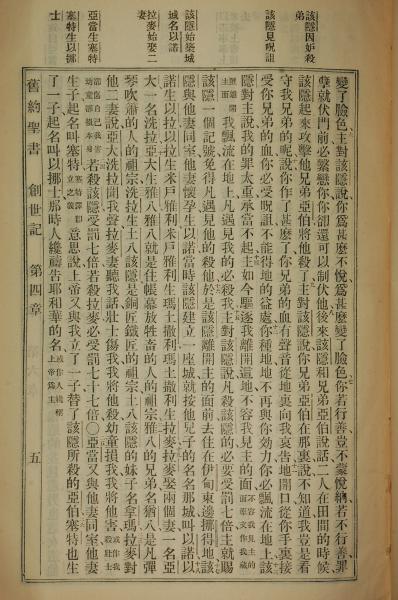 該隱因妒殺
弟
該隱見呪詛
該隱始築城
城名以諾
拉麥始娶二
妻
亞當生塞特
塞特生以挪
士
變了臉色主對該隱說你爲甚麽不悅爲甚麽變了臉色你若行善豈不蒙悅納若不行善罪
孽就伏門前必繫戀你你卻還可以制伏他後來該隱和兄弟亞伯說話二人在田間的時候
該隱起來攻擊他兄弟亞伯將他殺了主對該隱說你兄弟亞伯在那裏說不知道我豈是看
守我兄弟的呢說你作了甚麽了你兄弟的血有聲音從地裏向我哀告地開口從你手裏接
受你兄弟的血你必受呪詛不能得地的益處你種地地不再與你効力你必飄流在地上該
隱對主說我的罪太重承當不起主如今驅逐我離開這地不容我見主的面
我飄流在地上凡遇見我的必殺我主對該隱說凡殺該隱的必要受罰七倍主就賜
該隱一個記號免得凡遇見他的殺他於是該隱離開主的面前去住在伊甸東邊挪得地該
隱與他妻同室他妻懷孕生以諾當時該隱建立一座城就按他兒子的名名那城叫以諾以
諾生以拉以拉生米戶雅利米戶雅利生瑪土撒利瑪土撒利生拉麥拉麥娶兩個妻一名亞
大一名洗拉亞大生雅八雅八就是住帳幕放牲畜的人的祖宗雅八的兄弟名猶八是凡彈
琴吹簫的人的祖宗洗拉生土八該隱是銅匠鐵匠的祖宗土八該隱的妹子名拿瑪拉麥對
他二妻說亞大洗拉聞我聲拉麥妻聽我話壯士傷我我將他殺幼童損我我將他害
若殺該隱受罰七倍若殺拉麥必受罰七十七倍〇亞當又與他妻同室他妻
生子起名叫塞特意思說上帝又與我立了一子替了該隱所殺的亞伯塞特也生
了一子起名叫以挪士那時人纔禱告耶和華的名
舊約聖書 創世記 第四章 五